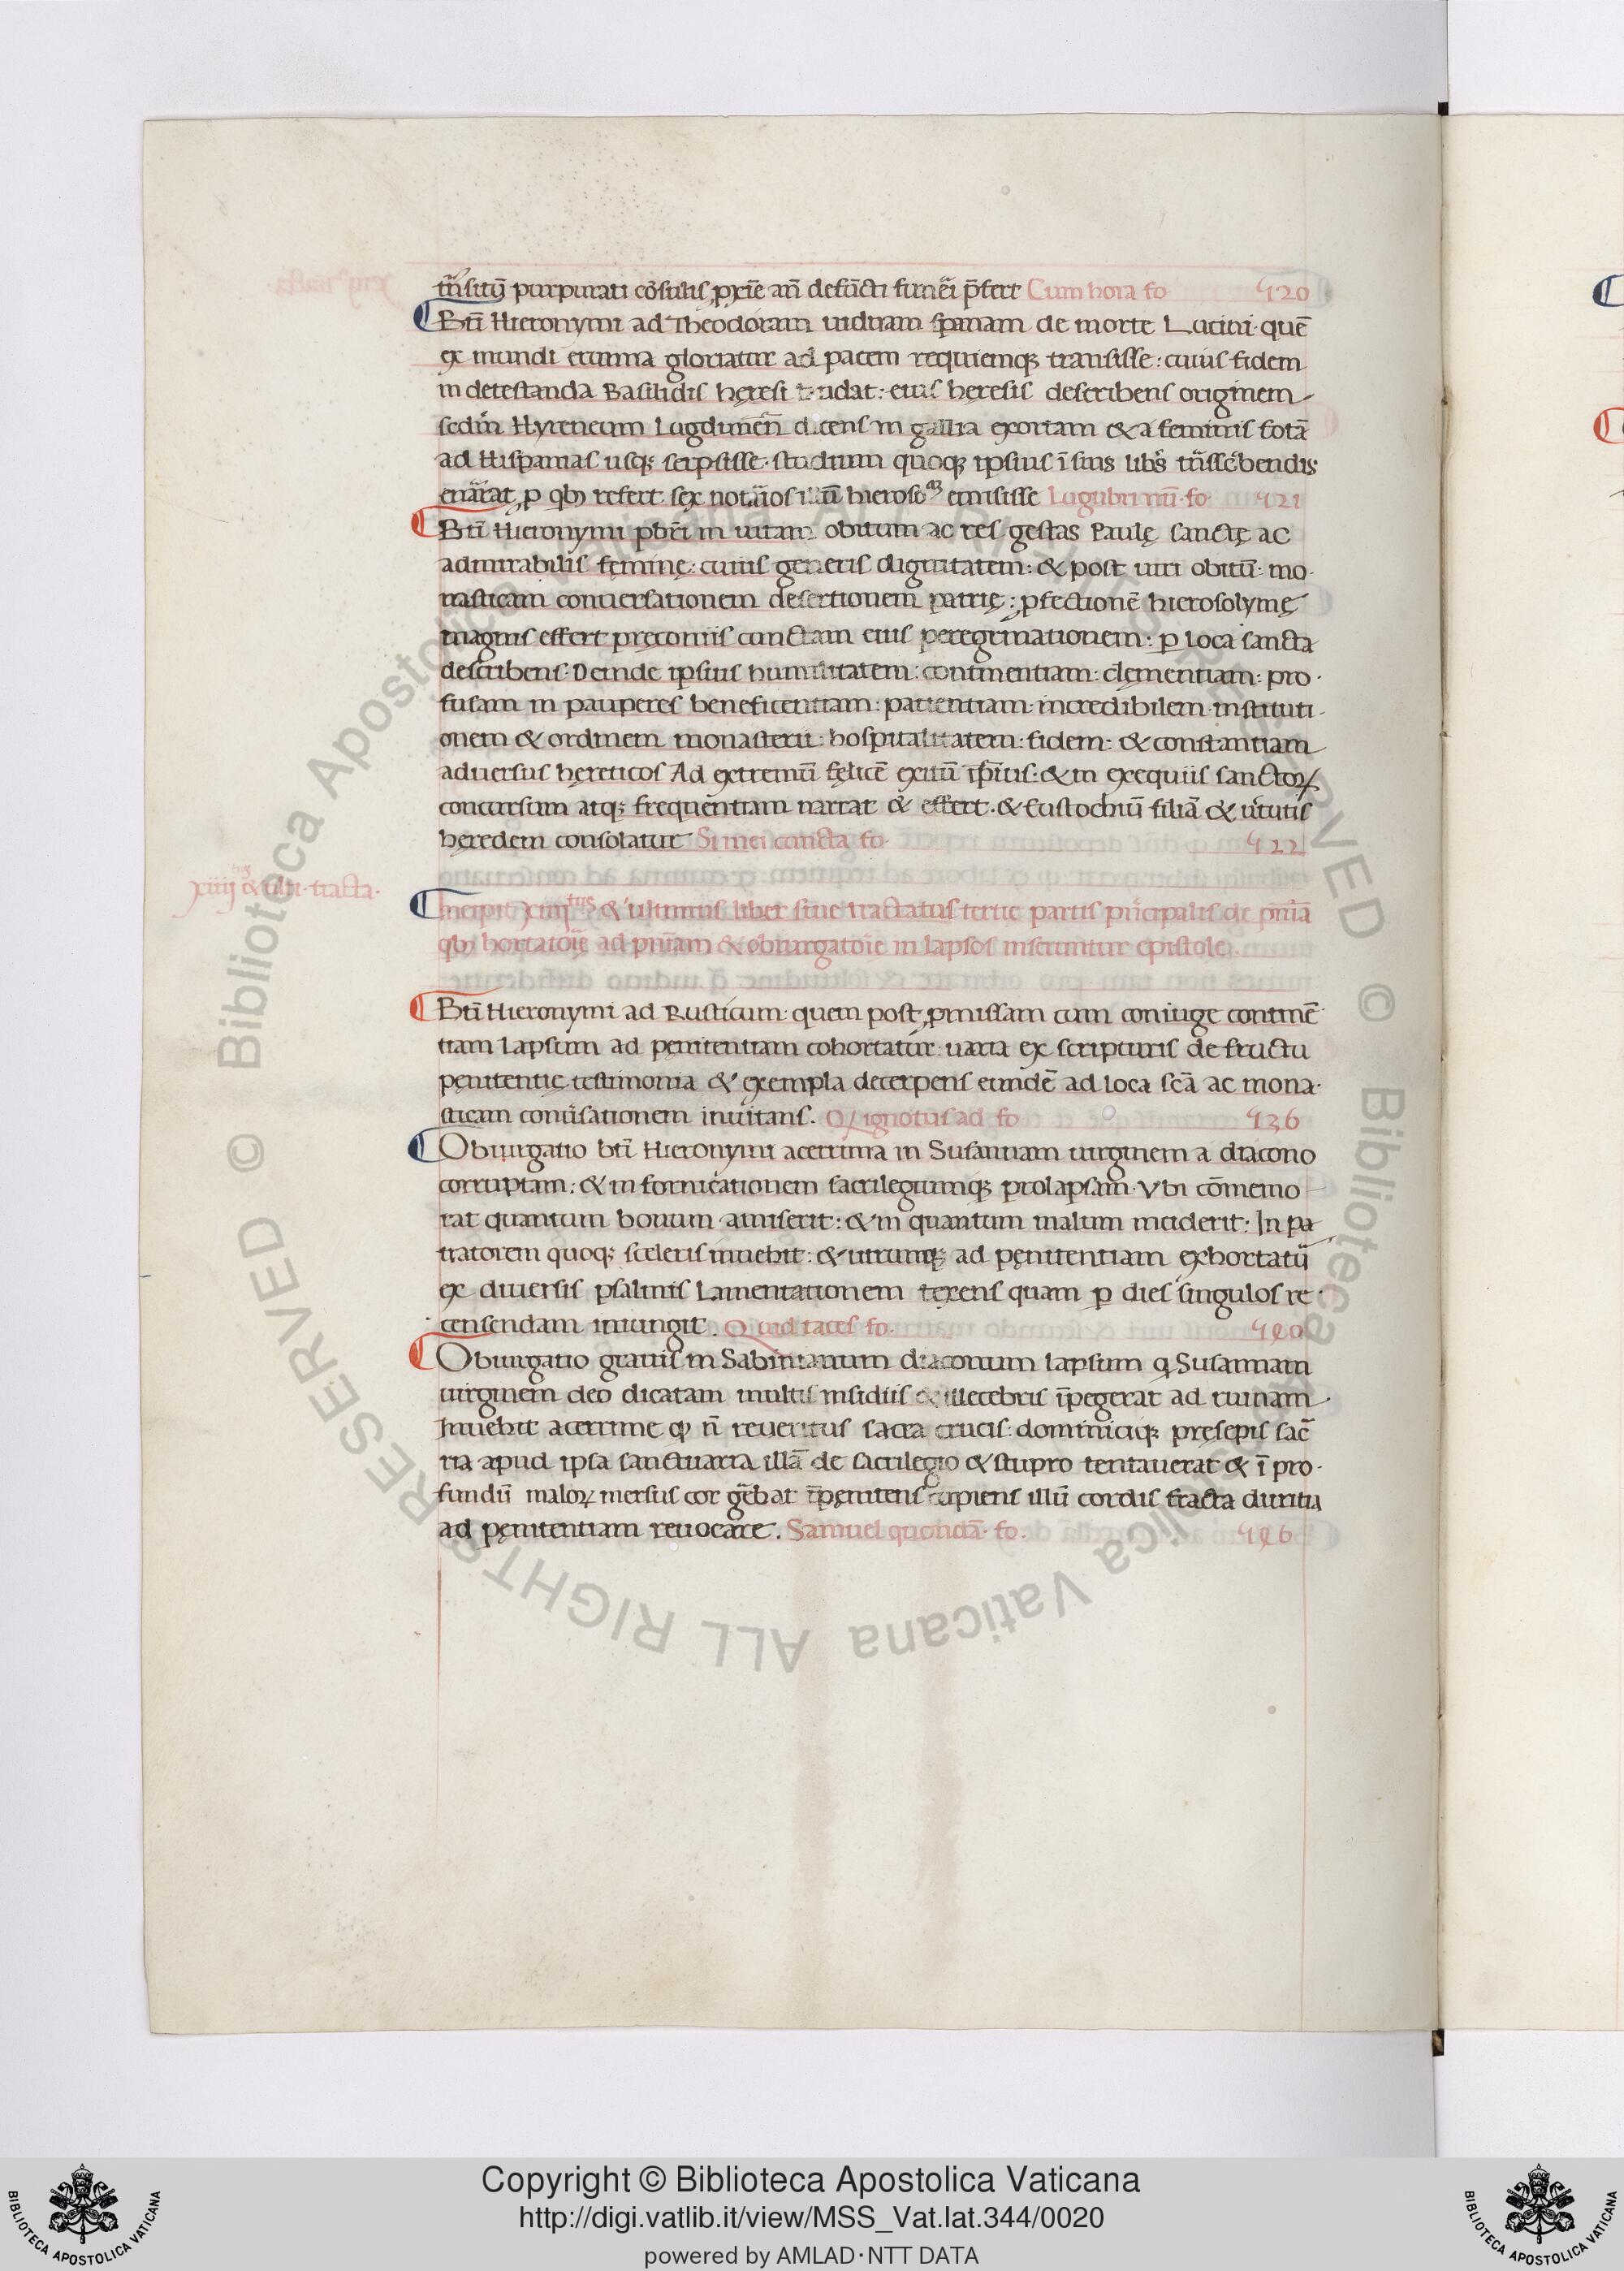 trāsitū purpurati cōsulis ꝓxīe an̄ defūcti funeri p̄fert Cum hora fo 420
Bt̄i Hieronymi ad Theodoram uiduam spanam de morte Lucini· quē
ex mundi erumna gloriatur ad pacem requiemqꝫ transisse: cuius fidem
in detestanda Basilidis hęresi laudat: eius heresis describens originem
secdm̄ Hyreneum Lugdunen̄ dicens in gallia exortam & a feminis fotā
ad Hispanias usqꝫ serpsisse· studium quoqꝫ ipsius ī suis libs̄ trāssc̄bendis
enarrat, ꝑ qb̄ refert sex notarios illū hieroso emisisse Lugubri nūt· fo· 421
Bt̄i Hieronymi pb̄ri in uitam obitum ac res gestas Paulę sanctę ac
admirabilis fęminę: cuius generis dignitatem: & post uiri obitū· mo·
nasticam conuersationem desertionem patrię: ꝓfectionē hierosolymę
magnis effert pręconiis cunctam eius peregrinationem: ꝑ loca sancta
describens· Deinde ipsius humilitatem: continentiam: clęmentiam: pro·
fusam in pauperes beneficentiam: patientiam· incredibilem· instituti·
onem & ordinem monasterii: hospitalitatem: fidem: & constantiam
aduersus hęreticos Ad extremū fęlicē exitū ip̄ius: & in exequiis sanctoꝝ
concursum atqꝫ frequentiam narrat & effert· & Eustochiū filiā & uirtutis
heredem consolatur Si mei cuncta fo· 422
xiiij tus & ulti· tracta·
Incipit xiiijtus & ultimus liber siue tractatus tertię partis principalis de pn̄ia
qb̄ hortatoię ad pn̄iam & obiurgatoie in lapsos inseruntur epistole·
Bt̄i Hieronymi ad Rusticum· quem post ꝓmissam cum coniuge continē
tiam lapsum ad pęnitentiam cohortatur: uaria ex scripturis de fructu
pęnitentię testimonia & exempla decerpens eundē ad loca sc̄a ac mona·
sticam conuersationem inuitans. Qꝫ ignotus ad fo 436
Obiurgatio bt̄i Hieronymi acerrima in Susannam uirginem a diacono
corruptam: & in fornicationem sacrilegiumqꝫ prolapsam· Vbi cōmemo
rat quantum bonum amiserit: & in quantum malum inciderit: In pa
tratorem quoqꝫ sceleris inuehit: & utrumqꝫ ad pęnitentiam exhortatur
ex diuersis psalmis lamentationem texens quam ꝑ dies singulos re·
censendam iniungit. Quid taces fo· 440
Obiurgatio grauis in Sabinianum diaconum lapsum ꝗ Susannam
uirginem deo dicatam multis insidiis & illecebris īpegerat ad ruinam·
Inuehit acerrime ꝙ n̄ reueritus sacra crucis: dominiciqꝫ pręsepis sac̄
ria apud ipsa sanctuaria illā de sacrilegio & stupro tentauerat & ī pro·
fundū maloꝝ mersus cor gerebat īpęnitens cupiens illū cordis fracta duritia
ad pęnitentiam reuocare. Samuel quondā· fo. 446
Copyright © Biblioteca Apostolica Vaticana
http://digi.vatlib.it/view/MSS_Vat.lat.344/0020
powered by AMLAD·NTT DATA
BIBLIOTECA APOSTOLICA VATICANA
BIBLIOTECA APOSTOLICA VATICANA
© Biblioteca Apostolica Vaticana ALL RIGHTS RESERVED © Biblioteca Apostolica Vaticana ALL RIGHTS RESERVED